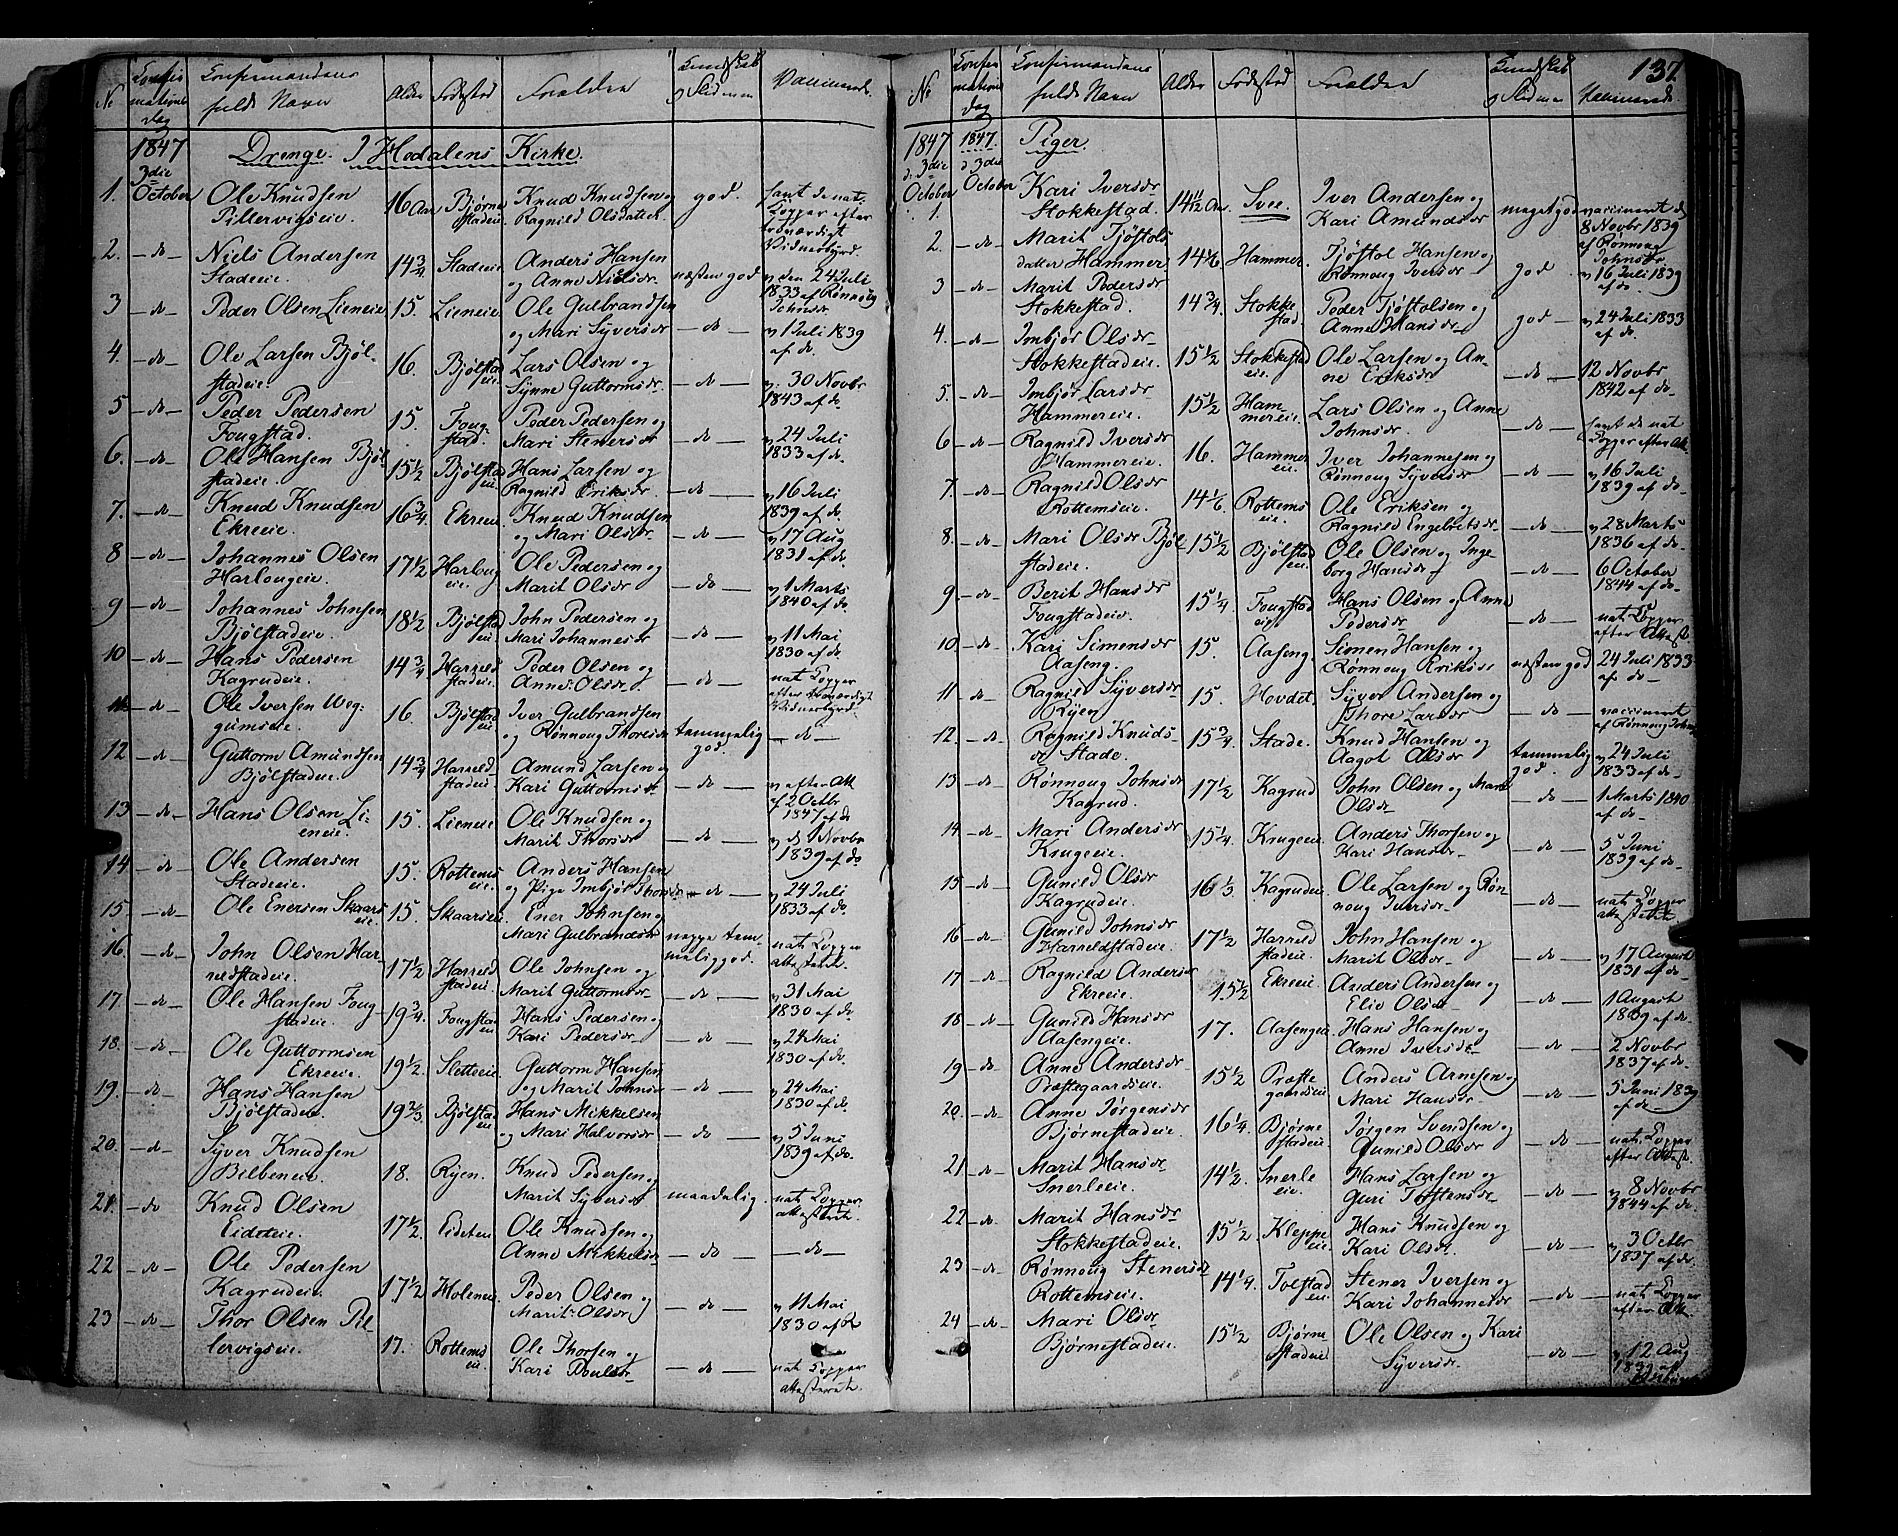 No Confirmations Dag Confirmandens fulde Navn Alder Fødested Forældre Kundskab og Flid m m Vaccinerede
1847 Drenge. I Hedalens Kirke.
3die October
1. Ole Knudsen Pillervigseie. 16 Aar Bjørnestadeie. Knud Knudsen og Ragnild Olsdatter god. havt de nat. Kopper efter troværdigt Vidnesbyrd.
2. -do- Niels Andersen Stadeie. 14 3/4 Stadeie Anders Hansen og Anne Nielsdr næsten god v den 24 Juli 1833 af Rønnoug Johnsdr
3 -do- Peder Olsen Lieneie 15. Lieneie Ole Gulbrandsen og Mari Syversdr -do- v 1 Juli 1839 af do.
4. -do- Ole Larsen Bjølstadeie. 16. Bjølstadeie. Lars Olsen og Synne Guttormsdr -do- v. 30 Novbr 1843 af do
5 -do- Peder Pedersen Fougstad. 15. Fougstad. Peder Pedersen og Mari Stenersdr -do- v 24 Juli 1833 af do.
6. -do- Ole Hansen Bjølstadeie. 15 1/2 Bjølstadeie Hans Larsen og Ragnild Eriksdr. -do- v 16 Juli 1839 af do.
7. -do- Knud Knudsen Ekreeie. 16 3/4 Ekreeie Knud Knudsen og Mari Olsdr. -do- v 17 Aug 1831 af do.
8 -do- Johannes Olsen Harlougeie. 17 1/2 Harlougeie. Ole Pedersen og Marit Olsdr -do- v 1 Marts 1840 af do.
9 -do- Johannes Johnsen Bjølstadeie. 18 1/2 Bjølstadeie. John Pedersen og Mari Johannesdr -do- v 11 Mai 1830 af do
10 -do- Hans Pedersen Kagrudeie. 14 3/4 Harreldstadeie. Peder Olsen og Anne Olsdr. -do- nat. Kopper efter troværdigt Vidnesbyrd.
11. -do- Ole Iversen Weggumseie. 16. Bjølstadeie Iver Gulbrandsen og Rønnoug Thoresdr temmelig god. -do-
12 -do- Guttorm Amundsen Bjølstadeie. 14 3/4 Harreldstadeie. Amund Larsen og Kari Guttormsdr -do- v efter Att. af 2 Octbr 1847 af do
13 -do- Hans Olsen Lieneie. 15. Lieneie Ole Knudsen og Marit Thorsdr -do- v d. 1 Novbr 1839 af do
14 -do- Ole Andersen Stadeie. 15. Rottemseie. Anders Hansen og Pige Imbjør Thorsdr -do- v 24 Juli 1833 af do.
15. -do- Ole Enersen Skaarseie. 15. Skaarseie. Ener Johnsen og Mari Gulbrandsdr neppe temmelig god. nat. Kopper attesteret.
16. -do- John Olsen Harreldstadeie. 17 1/2 Harreldstadeie. Ole Johnsen og Marit Guttormsdr -do- v 31 Mai 1830 af do.
17. -do- Ole Hansen Fougstadeie. 19 3/4. Fougstadeie Hans Pedersen og Kari Pedersdr -do- v 24 Mai 1830 af do.
18. -do- Ole Guttormsen Ekreeie. 19 1/2. Sletteeie. Guttorm Hansen og Marit Johnsdr -do- v 24 Mai 1830 af do.
19. -do- Hans Hansen Bjølstadeie. 19 2/3. Bjølstadeie Hans Mikkelsen og Mari Halvorsdr -do- v 5 Juni 1839 af do.
20. -do- Syver Knudsen Bilbeneie. 18. Ryen. Knud Pedersen og Marit Syversdr maadelig. nat. Kopper attesteret.
21. -do Knud Olsen Eideteie. 17 1/2. Eideteie Ole Knudsen og Anne Mikkelsdr -do- -do-
22 -do- Ole Pedersen Kagrudeie. 17 1/2 Holeneie. Peder Olsen og Marit Olsdr -do- v 11 Mai 1830 af do
23 -do- Thor Olsen Pillervigseie. 17. Rottemseie Ole Thorsen og Kari Poulsdr -do- nat. Kopper attesteret.
137
No Confirmations dag Confirmandens fulde Navn Alder Fødested Forældre Kundskab og Flid m m Vaccinerede.
1847 d. 3die October 1847. d 3die October Piger.
1. Kari Iversdr Stokkestad. 14 1/12 Aar. Svee. Iver Andersen og Kari Amundsdr meget god vaccineret d 8 Novbr 1839 af Rønnoug Johnsdr.
2. -do- Marit Tjøstolsdatter Hammer. 14 1/6 Hammer. Tjøstol Hansen og Rønnoug Iversdr. god v 16 Juli 1839 af do.
3 -do- Marit Pedersdr Stokkestad. 14 3/4. Stokkestad Peder Tjøstolsen og Anne Hansdr. god v 24 Juli 1833 af do.
4. -do- Imbjør Olsdr. Stokkestadeie. 15 1/2 Stokkestadeie. Ole Larsen og Anne Eriksdr -do- 12 Novbr 1842 af do.
5. -do- Imbjør Larsdr Hammereie. 15 1/2 Hammereie. Lars Olsen og Anne Johnsdr. -do- havt de nat. Kopper efter Att.
6 -do- Ragnild Iversdr Hammereie. 16. Hammereie. Iver Johannesen og Rønnoug Syversdr -do- v 16 Juli 1839 af do-
7. -do- Ragnild Olsdr Rottemseie. 14 1/6. Rottemseie. Ole Eriksen og Ragnild Engebretsdr. -do- v 28 Marts 1836 af do-
8. -do- Mari Olsdr Bjølstadeie. 15 1/2 Bjølstadeie. Ole Olsen og Ingeborg Hansdr -do- 6 October 1844 af do.
9 -do- Berit Hansdr Fougstadeie. 15 1/4. Fougstadeie Hans Olsen og Anne Pedersdr -do- nat Kopper efter Attest
10. -do- Kari Simensdr Aaseng. 15. Aaseng. Simen Hansen og Rønnoug Eriksdr næsten god 24 Juli 1833 af do-
11 -do- Ragnild Syversdr Ryen 15. Hovdet. Syver Andersen og Thore Larsdr -do- vaccineret af Rønnoug Johns
12. -do- Ragnild Knudsdr Stade. 15 3/4. Stade. Knud Hansen og Aagot Olsdr temmelig god. v 24 Juli 1833 af do-
13 -do- Rønnoug Johnsdr Kagrud. 17 1/2 Kagrud John Olsen og Mari Olsdr -do- 1 Marts 1840 af do-
14 -do- Mari Andersdr Krugeeie. 15 1/4. Krugeeie. Anders Thorsen og Kari Hansdr -do- 5 Juni 1839 af do-
15 -do- Gunild Olsdr Kagrudeie. 16 1/3 Kagrudeie Ole Larsen og Rønnoug Iversdr -do- nat. Kopper attesteret
16 -do- Gunild Johnsdr Harreldstadeie. 17 1/2 Harreldstadeie. John Hansen og Marit Olsdr -do- v 17 August 1831 af do-
17 -do- Ragnild Andersdr Ekreeie. 15 1/2 Ekreeie. Anders Andersen og Eliv Olsdr -do- 1 August 1839 af do-
18 -do- Gunild Hansdr Aasengeie. 17. Aasengeie. Hans Hansen og Anne Iversdr -do- 2 Novbr 1837 af do-
19 -do- Anne Andersdr Præstegaardseie. 15 1/2 Præstegaardseie Anders Arnesen og Mari Hansdr -do- 5 Juni 1839 af do-
20. -do- Anne Jørgensdr Bjørnestadeie. 16 1/4. Bjørnestadeie. Jørgen Svendsen og Gunild Olsdr -do- nat. Kopper efter Attest.
21 -do- Marit Hansdr Snerleeie. 14 1/2. Snerleeie. Hans Larsen og Guri Tostensdr -do- v 8 Novbr 1844 af do.
22 -do- Marit Hansdr Stokkestadeie. 15 1/2 Kleppeeie Hans Knudsen og Kari Olsdr. -do- v 3 Octbr 1837 af do-
23 -do- Rønnoug Stenersdr Rottemseie. 14 1/4. Tolstadeie Stener Iversen og Kari Johannesdr -do- nat. Kopper efter Att.
24 -do- Mari Olsdr Bjørnestadeie. 15 1/2 Bjørnestadeie Ole Olsen og Kari Syversdr. -do- v 12 Aug